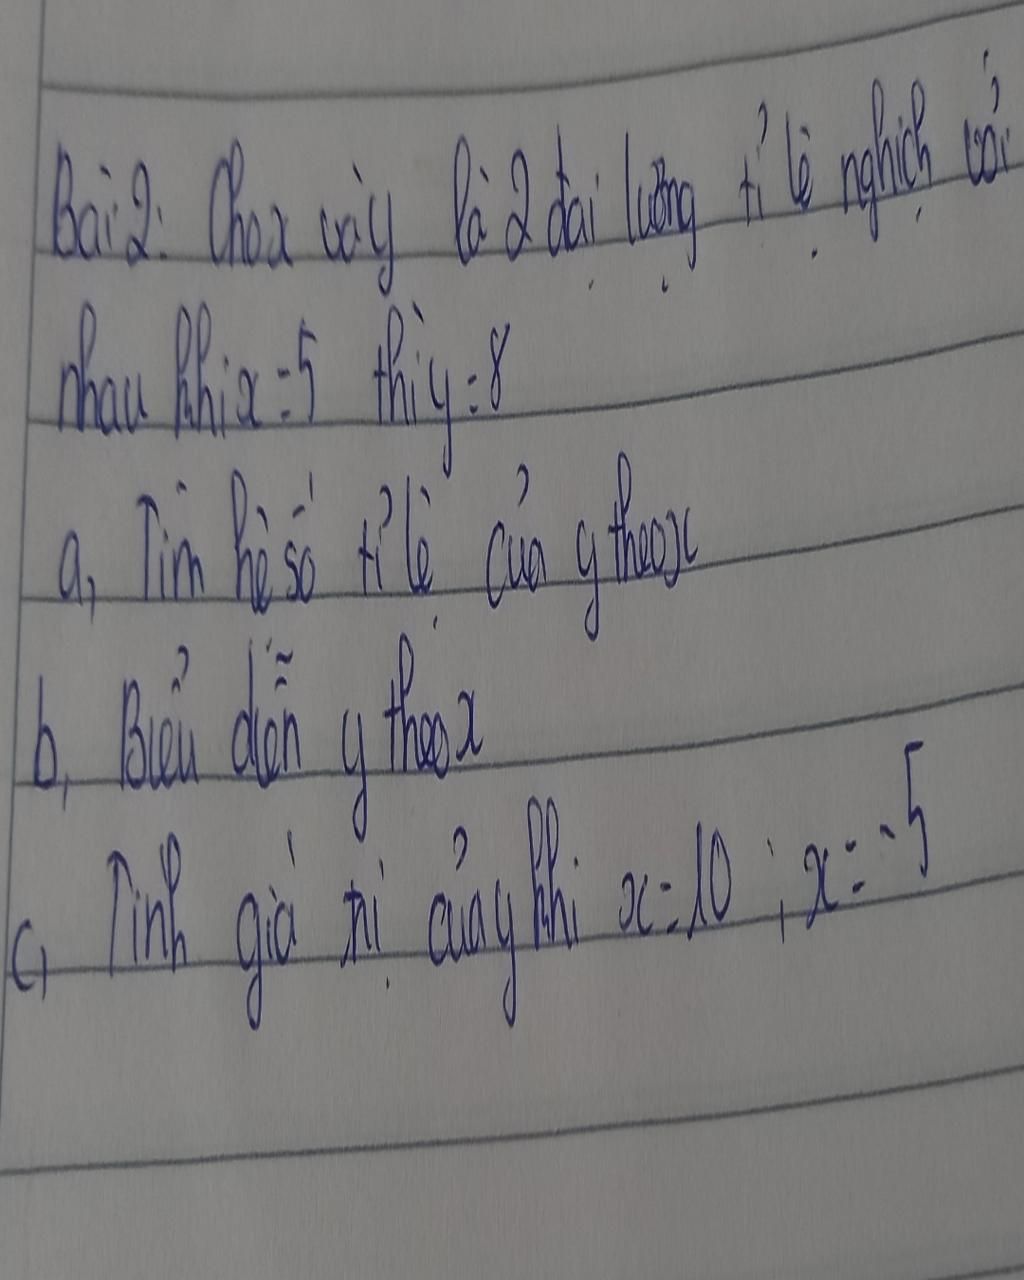 Bài 2: Cho x và y là 2 đại lượng tỉ lệ nghịch với
nhau khi x = 5 thì y = 8
a, Tìm hệ số tỉ lệ của y theo x
b, Biểu diễn y theo x
c, Tính giá trị của y khi x = 10 ; x = -5